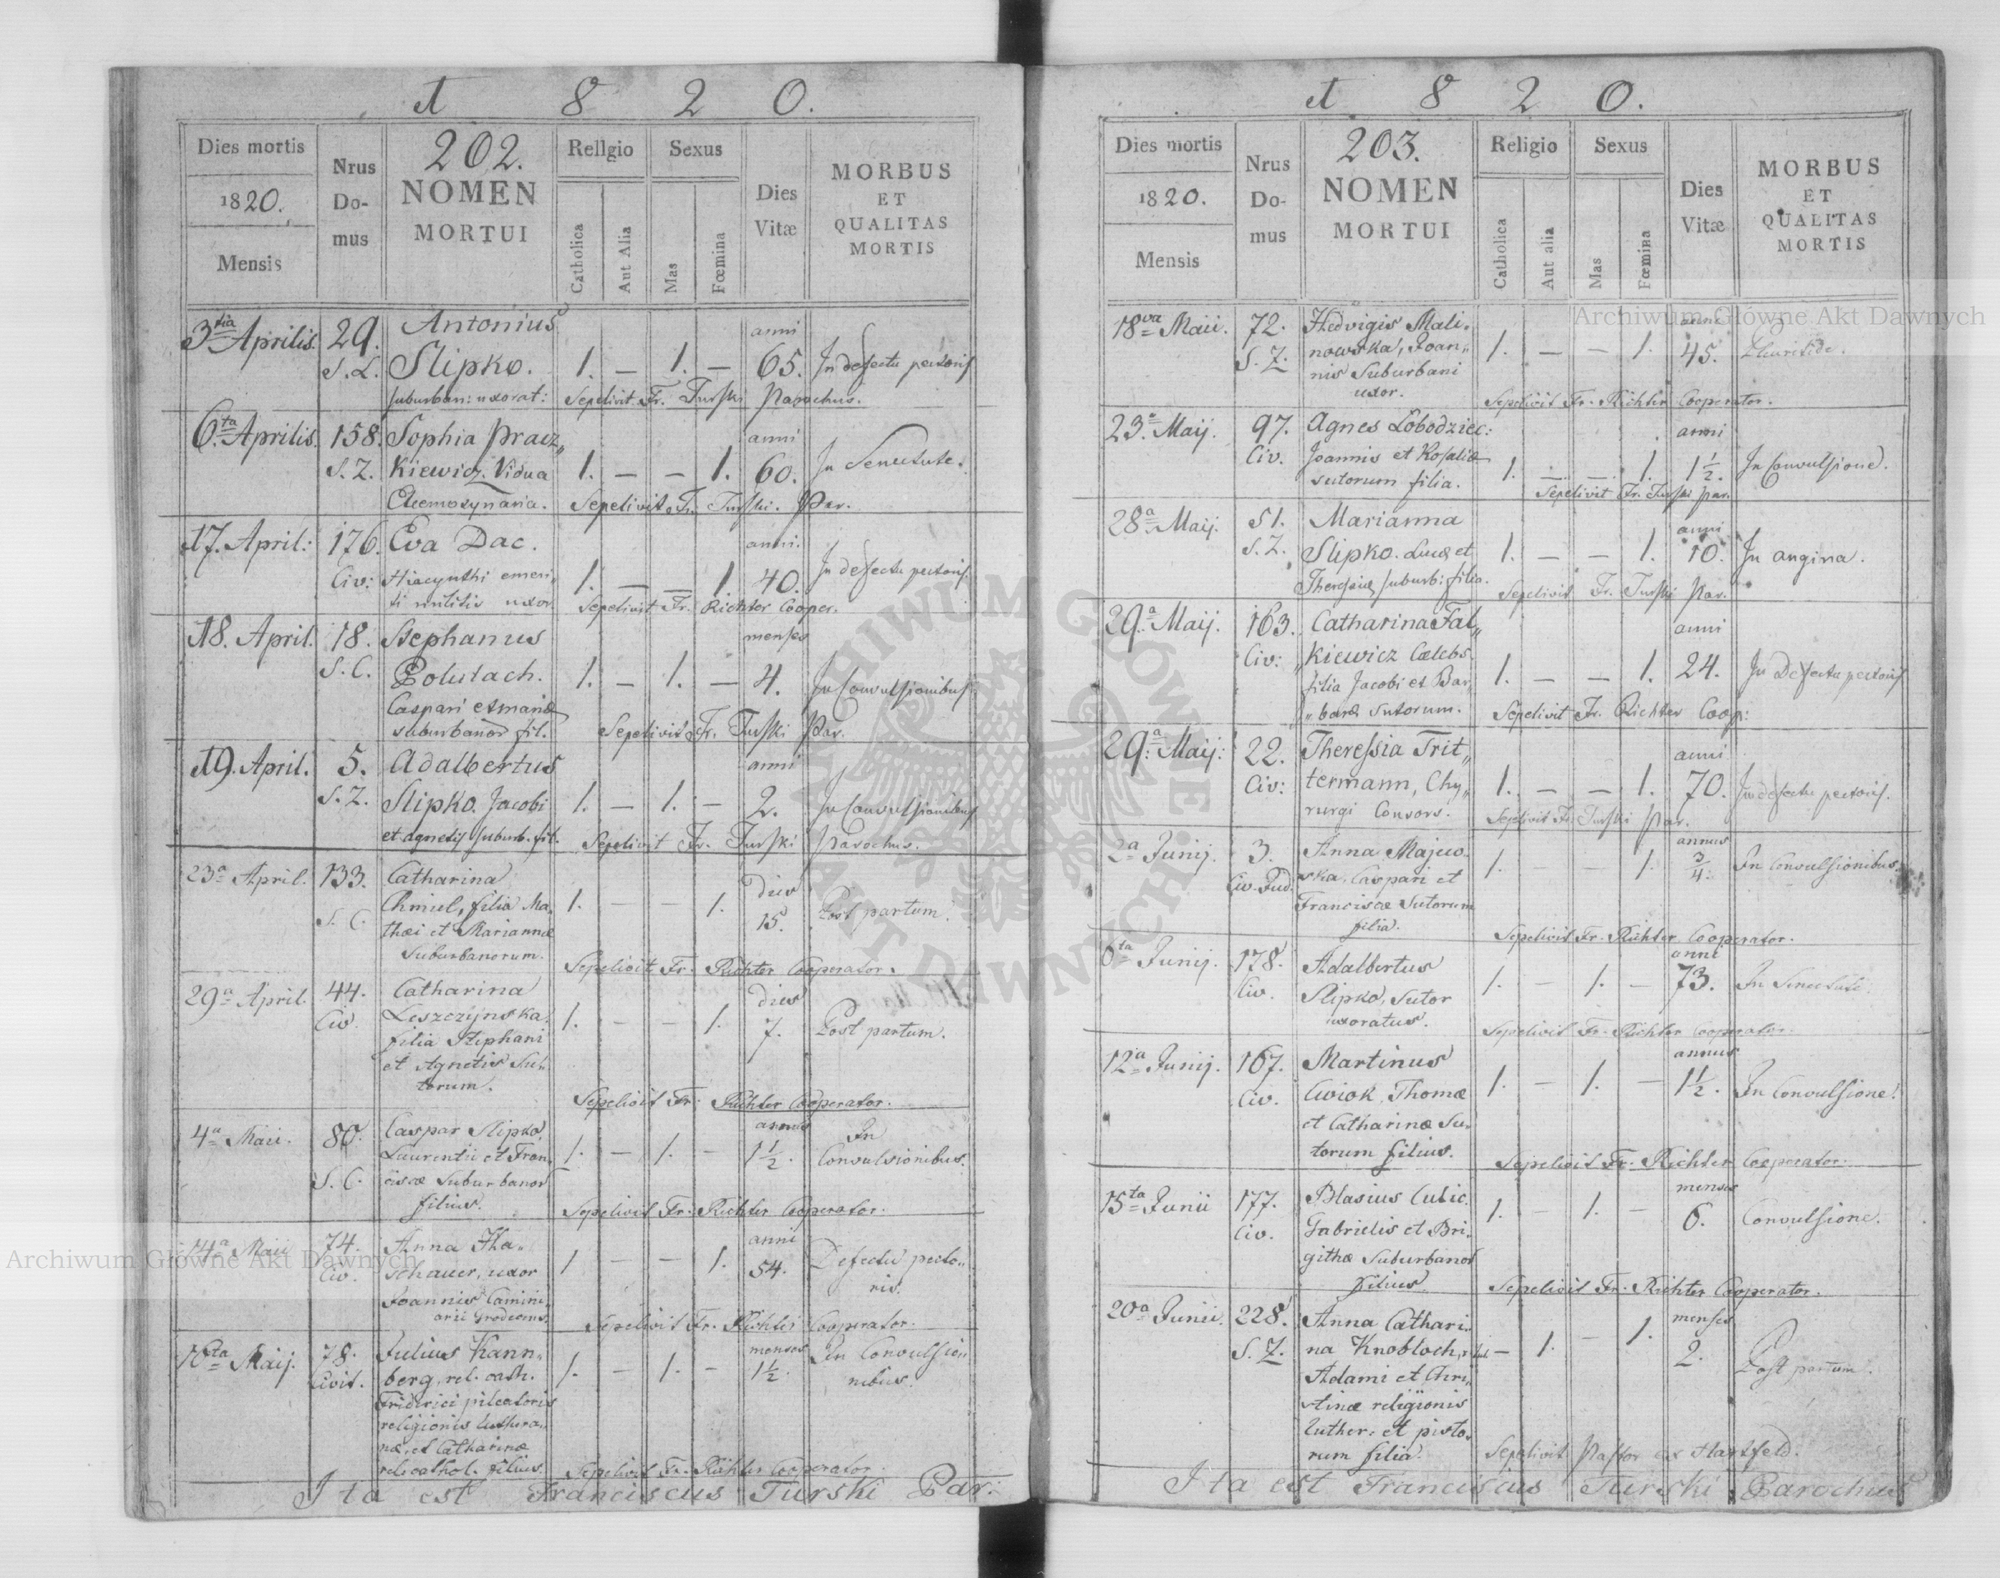 1 8 2 0.
Dies mortis
1820.
Mensis
Nrus
Do-
mus
202.
NOMEN
MORTUI
Religio
Catholica
Aut Alia
Sexus
Mas
Fœmina
Dies
Vitæ
MORBUS
ET
QUALITAS
MORTIS
3tia Aprilis. 29. Antonius anni
S. L. Slipko. 1. — 1. — 65. In defectu pectoris
suburban: uxorat: Sepelivit Fr. Turski Parochus.
6ta Aprilis. 158. Sophia Pracz„ anni
S. Z. kiewicz. Vidua 1. — — 1. 60. In Senectute.
Eleemosynaria. Sepelivit Fr. Turski. Par.
17. April: 176. Eva Dac. anni.
Civ: Hiacynthi emeri„ 1. — — 1. 40. In defectu pectoris.
ti militis uxor Sepelivit Fr. Richter Cooper.
18. April. 18. Stephanus menses
S. C. Polutach. 1. — 1. — 4. In Convulsionibus.
Caspari et Mariæ
suburbanor fil. Sepelivit Fr. Turski Par.
19. April. 5. Adalbertus anni
S. Z. Slipko. Jacobi 1. — 1. — 2. In Convulsionibus
et Agnetis suburb. fil. Sepelivit Fr. Turski Parochus.
23a April. 133. Catharina dies
S. C. Chmiel, filia Ma- 1. — — 1. 15. Post partum.
thæi et Mariannæ
Suburbanorum. Sepelivit Fr. Richter Cooperator.
29a April. 44. Catharina dies
Civ. Leszczynska. 1. — — 1. 7. Post partum.
filia Stephani
et Agnetis Su-
torum. Sepelivit Fr: Richter Cooperator.
4a Maii. 80. Caspar Slipko, annus In
Laurentii et Fran- 1. — 1. — 1 1/2. Convulsionibus.
S. C. ciscæ Suburbanor
filius. Sepelivit Fr: Richter Cooperator.
14a Maii 74. Anna Ha- anni
Civ. schauer, uxor 1. — — 1. 54. Defectu pecto-
Joannis Camini- ris.
arii Grodecens. Sepelivit Fr. Richter Cooperator.
78. Julius Kann- menses In Convulsio-
Maij. Civit. berg, rel. cath. 1. — 1. — 1 1/2. nibus.
Friderici pileatoris
religionis luthera-
næ, et Catharinæ
rel: cathol. filius. Sepelivit Fr. Richter Cooperator.
Ita est Franciscus Turski Par:
1 8 2 0.
Dies mortis
1820.
Mensis
Nrus
Do-
mus
203.
NOMEN
MORTUI
Religio
Catholica
Aut alia
Sexus
Mas
Fœmina
Dies
Vitæ
MORBUS
ET
QUALITAS
MORTIS
18va Maii. 72. Hedvigis Mali- anni
S. Z. nowska, Joan„ 1. — — 1. 45. Pleuritide.
nis Suburbani
uxor. Sepelivit Fr. Richter Cooperator.
23a Maij. 97. Agnes Lobodziec: anni
Civ. Joannis et Rosaliæ 1. — — 1. 1 1/2. In Convulsione.
sutorum filia. Sepelivit Fr. Turski Par.
28a Maij. 51. Marianna anni
S. Z. Slipko. Lucæ et 1. — — 1. 10. In angina.
Theresiæ suburb: filia. Sepelivit Fr. Turski Par.
29a Maij. 163. Catharina Fal„ anni
Civ: „kiewicz Cælebs. 1. — — 1. 24. In Defectu pectoris
filia Jacobi et Bar„
„baræ Sutorum. Sepelivit Fr. Richter Coop:
29a Maij: 22. Theressia Trit„ anni
Civ: termann, Chy„ 1. — — 1. 70. In defectu pectoris.
rurgi Consors. Sepelivit Fr. Turski Par.
2a Junij. 3. Anna Majew- annus
Civ. Jud. ska. Caspari et 1. — — 1. 3/4. In Convulsionibus.
Franciscæ Sutorum
filia. Sepelivit Fr. Richter Cooperator.
6ta Junij. 178. Adalbertus anni
Civ. Slipko, Sutor 1. — 1. — 73. In Senectute.
uxoratus. Sepelivit Fr. Richter Cooperator.
12a Junij. 167. Martinus annus
Civ. Cwiok, Thomæ 1. — 1. — 1 1/2. In Convulsione.
et Catharinæ Su-
torum filius. Sepelivit Fr. Richter Cooperator.
15ta Junii 177. Blasius Culic. menses
Civ. Gabrielis et Bri- 1. — 1. — 6. Convulsione.
githæ Suburbanor
filius. Sepelivit Fr. Richter Cooperator.
20a Junii. 228. Anna Cathari- menses
S. Z. na Knobloch, — 1. — 1. 2. Post partum.
Adami et Chri-
stinæ religionis
luther. et pisto-
rum filia. Sepelivit Pastor ex Hartfeld.
Ita est Franciscus Turski Parochus
Archiwum Główne Akt Dawnych
Archiwum Główne Akt Dawnych
ARCHIWUM GŁÓWNE AKT DAWNYCH